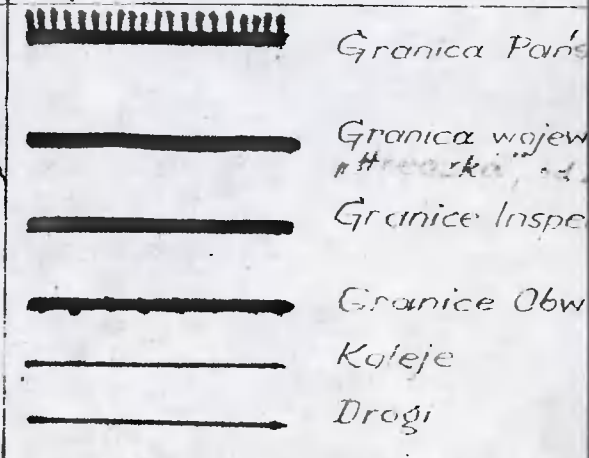 Granica Pańs
Granica wojew
Granice Inspe
Granice Obw
Koleje
Drogi